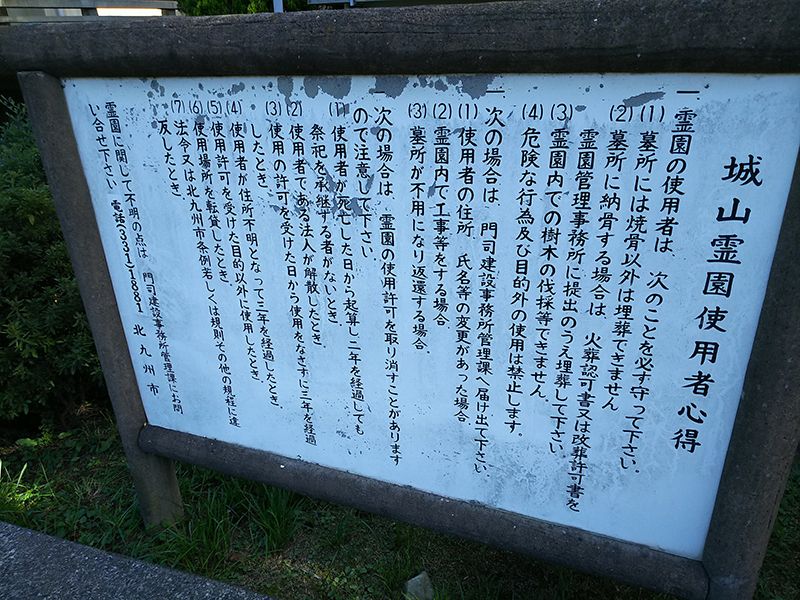 城山霊園使用者心得
一 霊園の使用者は、次のことを必ず守って下さい。
(1) 墓所には焼骨以外は埋葬できません
(2) 墓所に納骨する場合は、火葬認可書又は改葬許可書を
霊園管理事務所に提出のうえ埋葬して下さい。
(3) 霊園内での樹木の伐採等できません。
(4) 危険な行為及び目的外の使用は禁止します。
一 次の場合は、門司建設事務所管理課へ届け出て下さい。
(1) 使用者の住所、氏名等の変更があった場合。
(2) 霊園内で工事等をする場合。
(3) 墓所が不用になり返還する場合。
一 次の場合は、霊園の使用許可を取り消すことがあります
ので注意して下さい。
(1) 使用者が死亡した日から起算し二年を経過しても
祭祀を承継する者がないとき。
(2) 使用者である法人が解散したとき。
(3) 使用の許可を受けた日から使用をなさずに三年を経過
したとき。
(4) 使用者が住所不明となって三年を経過したとき。
(5) 使用許可を受けた目的以外に使用したとき。
(6) 使用場所を転貸したとき。
(7) 法令又は北九州市条例若しくは規則その他の規程に違
反したとき。
霊園に関して不明の点は、門司建設事務所管理課にお問
い合せ下さい。電話(331)1881 北九州市